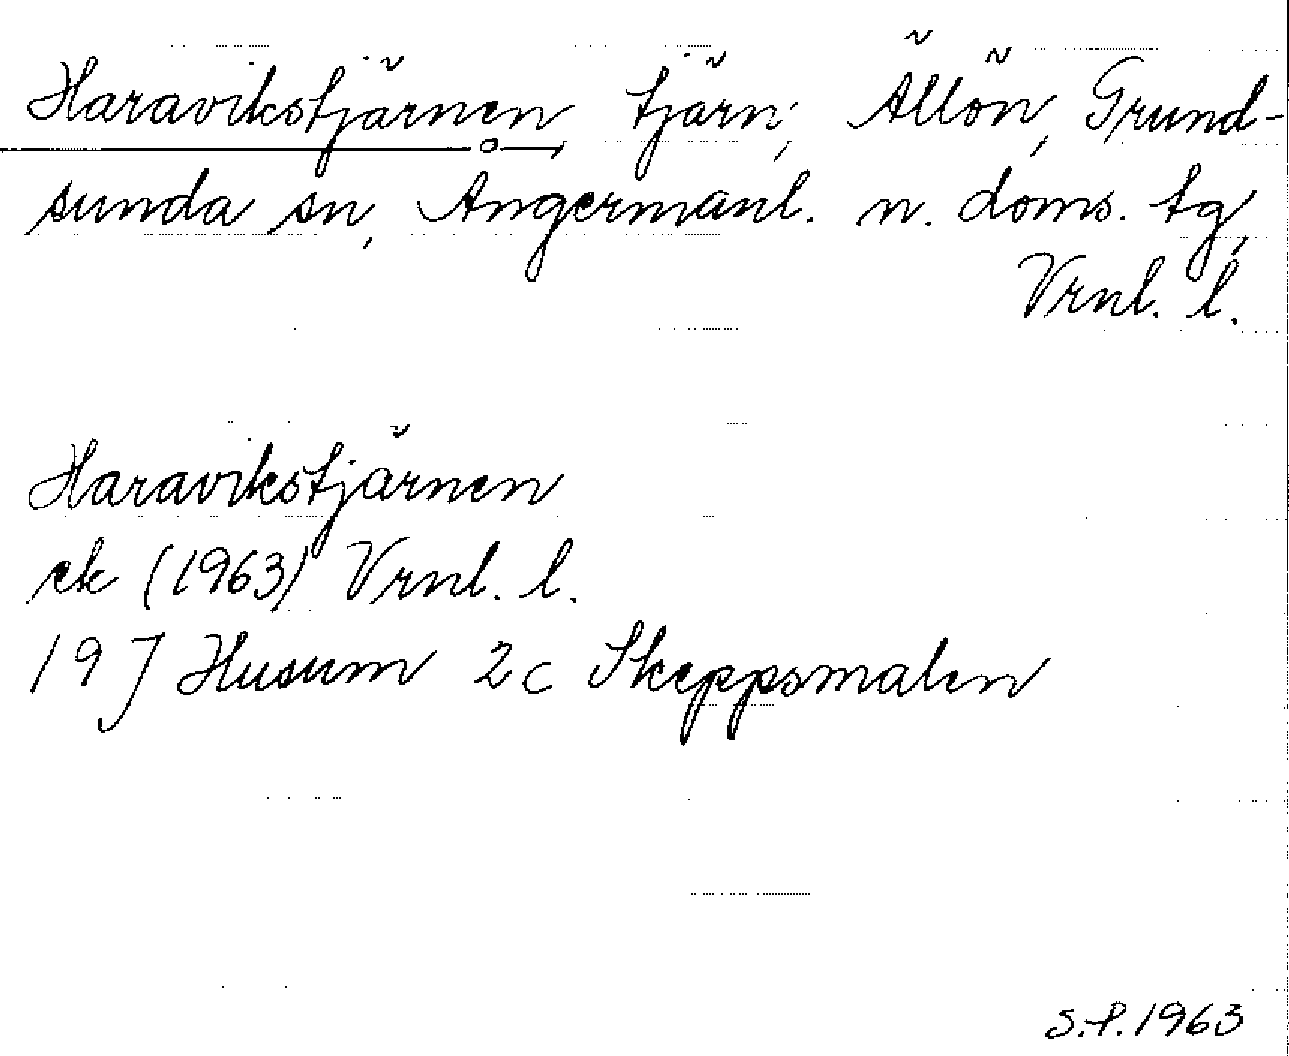 Haravikstjärnen, tjärn, Ällön, Grund-
sunda sn, Ångermanl. n. doms. tg,
Vrnl. l.
Haravikstjärnen
ek (1963) Vrnl. l.
19 J Husum 2c Skeppsmalen
S.P. 1963